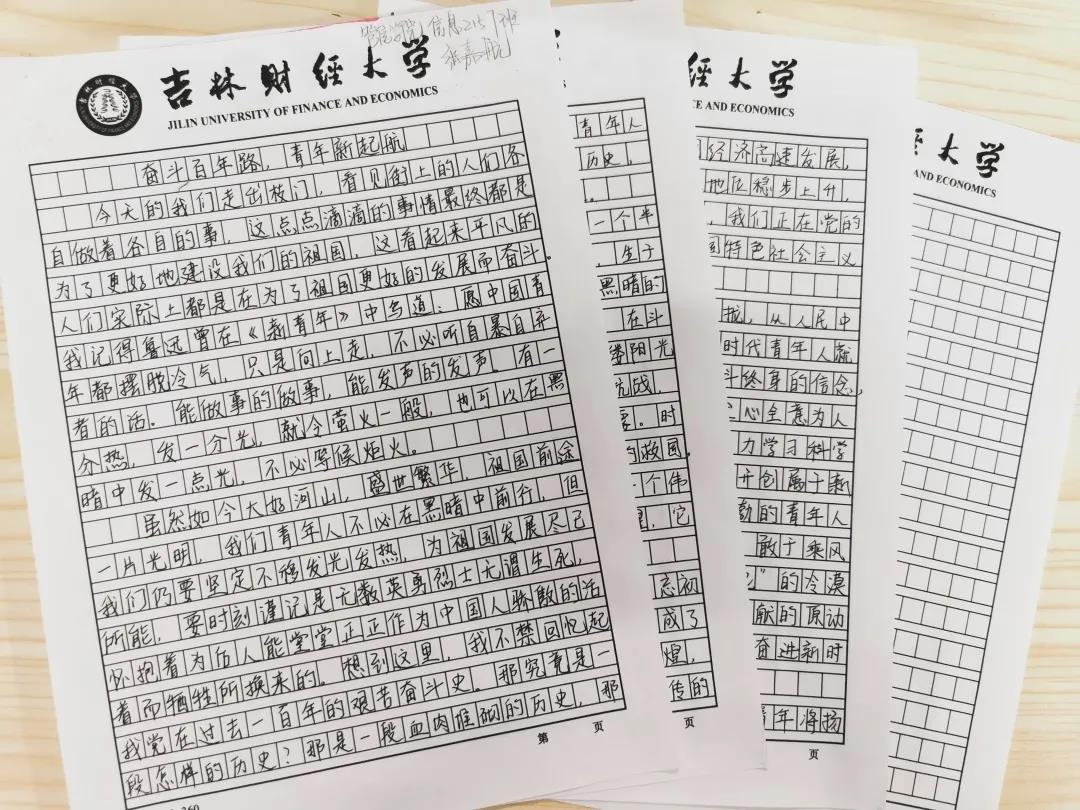 管信学院 信息2157班
张嘉航
吉林财经大学
JILIN UNIVERSITY OF FINANCE AND ECONOMICS
奋斗百年路，青年新起航
今天的我们走出校门，看见街上的人们各
自做着各自的事，这点点滴滴的事情最终都是
为了更好地建设我们的祖国，这看起来平凡的
人们实际上都是在为了祖国更好的发展而奋斗。
我记得鲁迅曾在《新青年》中写道：愿中国青
年都摆脱冷气，只是向上走，不必听自暴自弃
者的话。能做事的做事，能发声的发声。有一
分热，发一分光，就令萤火一般，也可以在黑
暗中发一点光，不必等候炬火。
虽然如今大好河山，盛世繁华，祖国前途
一片光明，我们青年人不必在黑暗中前行，但
我们仍要坚定不移发光发热，为祖国发展尽己
所能，要时刻谨记是无数英勇烈士无谓生死，
怀抱着为后人能堂堂正正作为中国人骄傲的活
着而牺牲所换来的。想到这里，我不禁回忆起
我党在过去一百年的艰苦奋斗史。那究竟是一
段怎样的历史？那是一段血肉堆砌的历史，那
第 页
青年人
历史，
一个半
，生于
黑暗的
在斗
缕阳光
抗战，
。时
的救国
个伟
，它
忘初
成了
煌，
传的
页
经大学
CE AND ECONOMICS
经济高速发展，
地位稳步上升，
，我们正在党的
国特色社会主义
，从人民中
时代青年人就
斗终身的信念，
心全意为人
力学习科学
开创属于新
勃的青年人
敢于乘风
”的冷漠
献的原动
奋进新时
青年将扬
页
大学
AND ECONOMICS